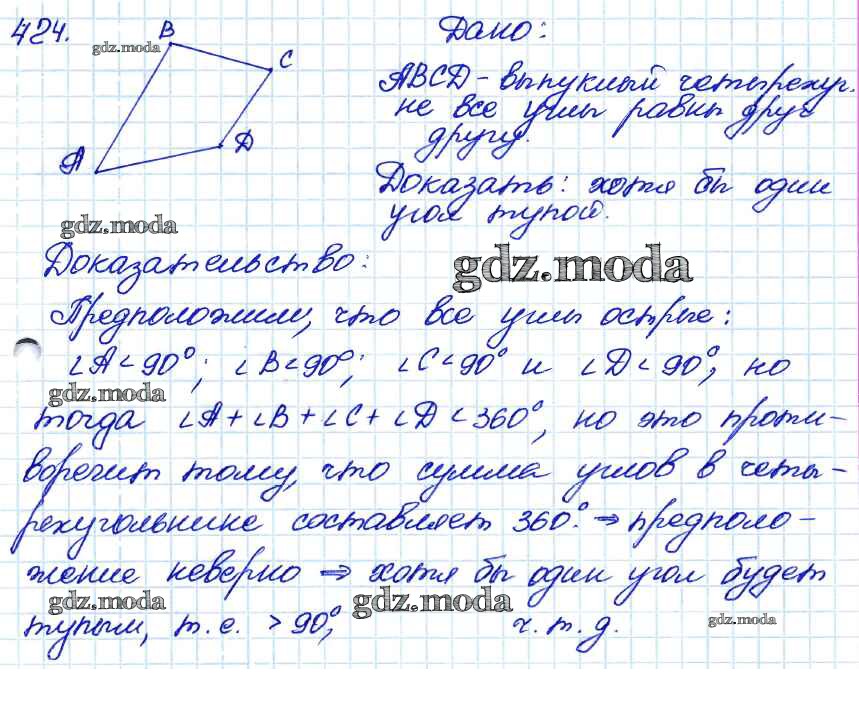 424.
B
gdz.moda
C
A
D
Дано:
ABCD - выпуклый четырехуг.
не все углы равны друг
другу.
Доказать: хотя бы один
угол тупой.
gdz.moda
Доказательство:
gdz.moda
Предположим, что все углы острые:
∠A < 90°; ∠B < 90°; ∠C < 90° и ∠D < 90°, но
gdz.moda
тогда ∠A + ∠B + ∠C + ∠D < 360°, но это проти-
воречит тому, что сумма углов в четы-
рехугольнике составляет 360°. ⇒ предполо-
жение неверно ⇒ хотя бы один угол будет
gdz.moda
gdz.moda
тупым, т.е. > 90°,
ч.т.д.
gdz.moda